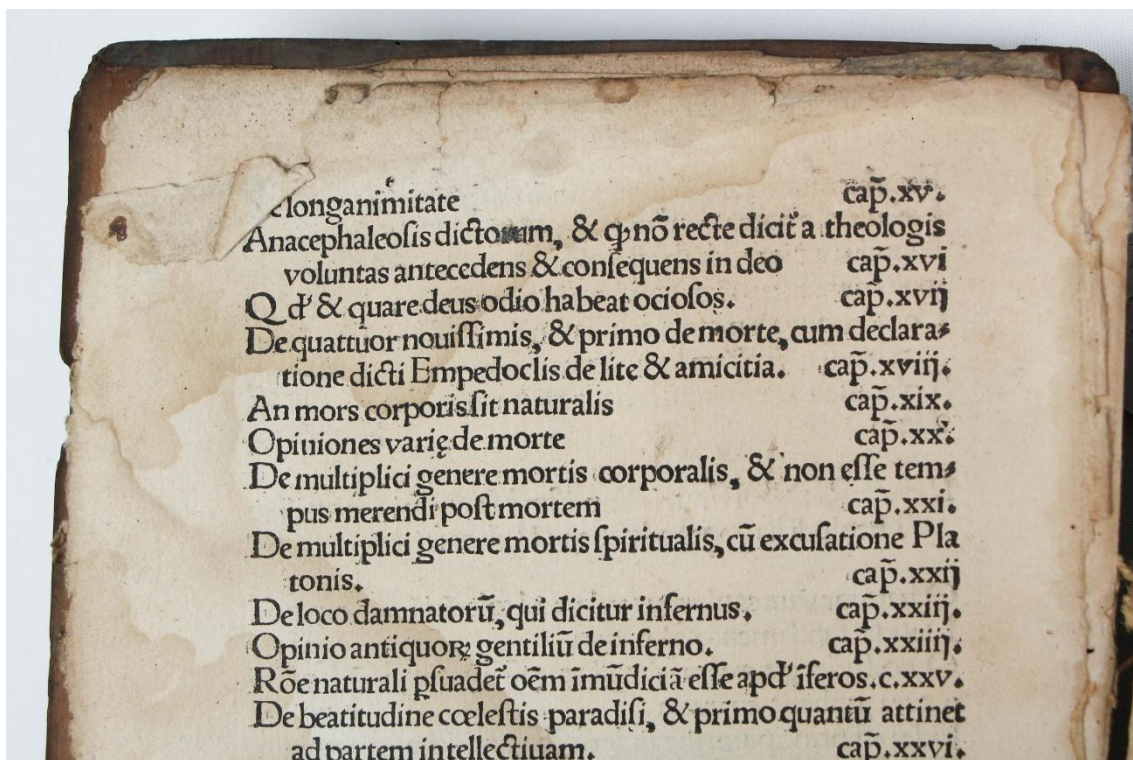 e longanimitate cap̃.xv.
Anacephaleoſis dictorum, & ꝙ nõ recte dicit̃ a theologis
voluntas antecedens & conſequens in deo cap̃.xvi
Q d' & quare deus odio habeat ocioſos. cap̃.xvij
De quattuor nouiſſimis, & primo de morte, cum declara⸗
tione dicti Empedoclis de lite & amicitia. cap̃.xviij.
An mors corporis ſit naturalis cap̃.xix.
Opiniones varię de morte cap̃.xx.
De multiplici genere mortis corporalis, & non eſſe tem⸗
pus merendi poſt mortem cap̃.xxi.
De multiplici genere mortis ſpiritualis, cū excuſatione Pla
tonis. cap̃.xxij
De loco damnatorū, qui dicitur infernus. cap̃.xxiij.
Opinio antiquoꝝ gentiliū de inferno. cap̃.xxiiij.
Rõe naturali pſuadet̃ oẽm ĩmūdiciã eſſe apd' ĩferos.c.xxv.
De beatitudine cœleſtis paradiſi, & primo quantū attinet
ad partem intellectiuam. cap̃.xxvi.